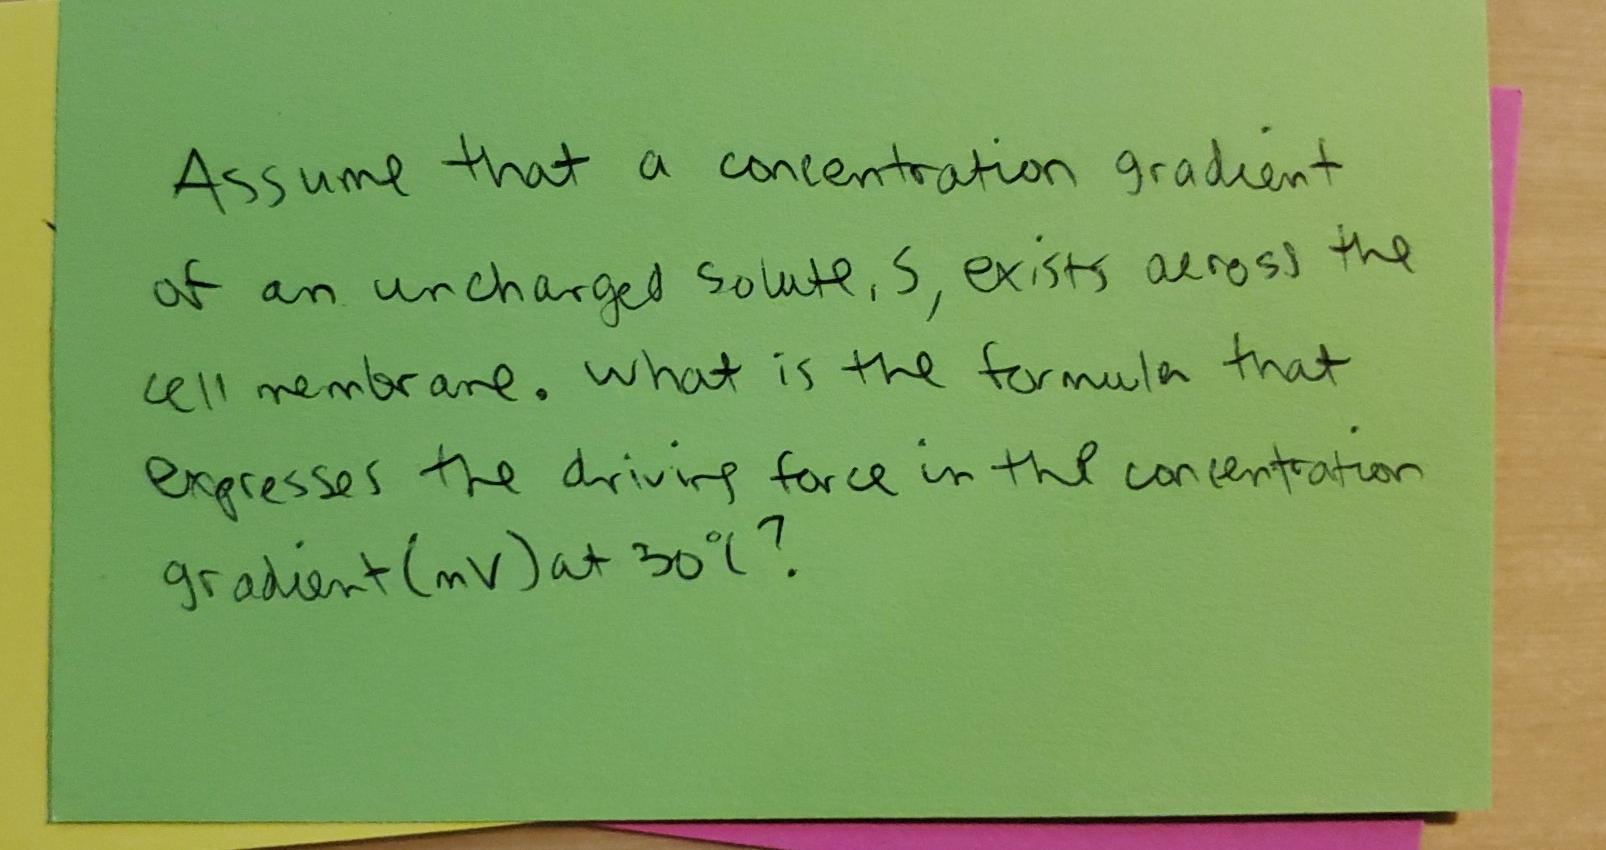 Assume that a concentration gradient
of an uncharged solute, S, exists across the
cell membrane. What is the formula that
expresses the driving force in the concentration
gradient (mV) at 30°C?